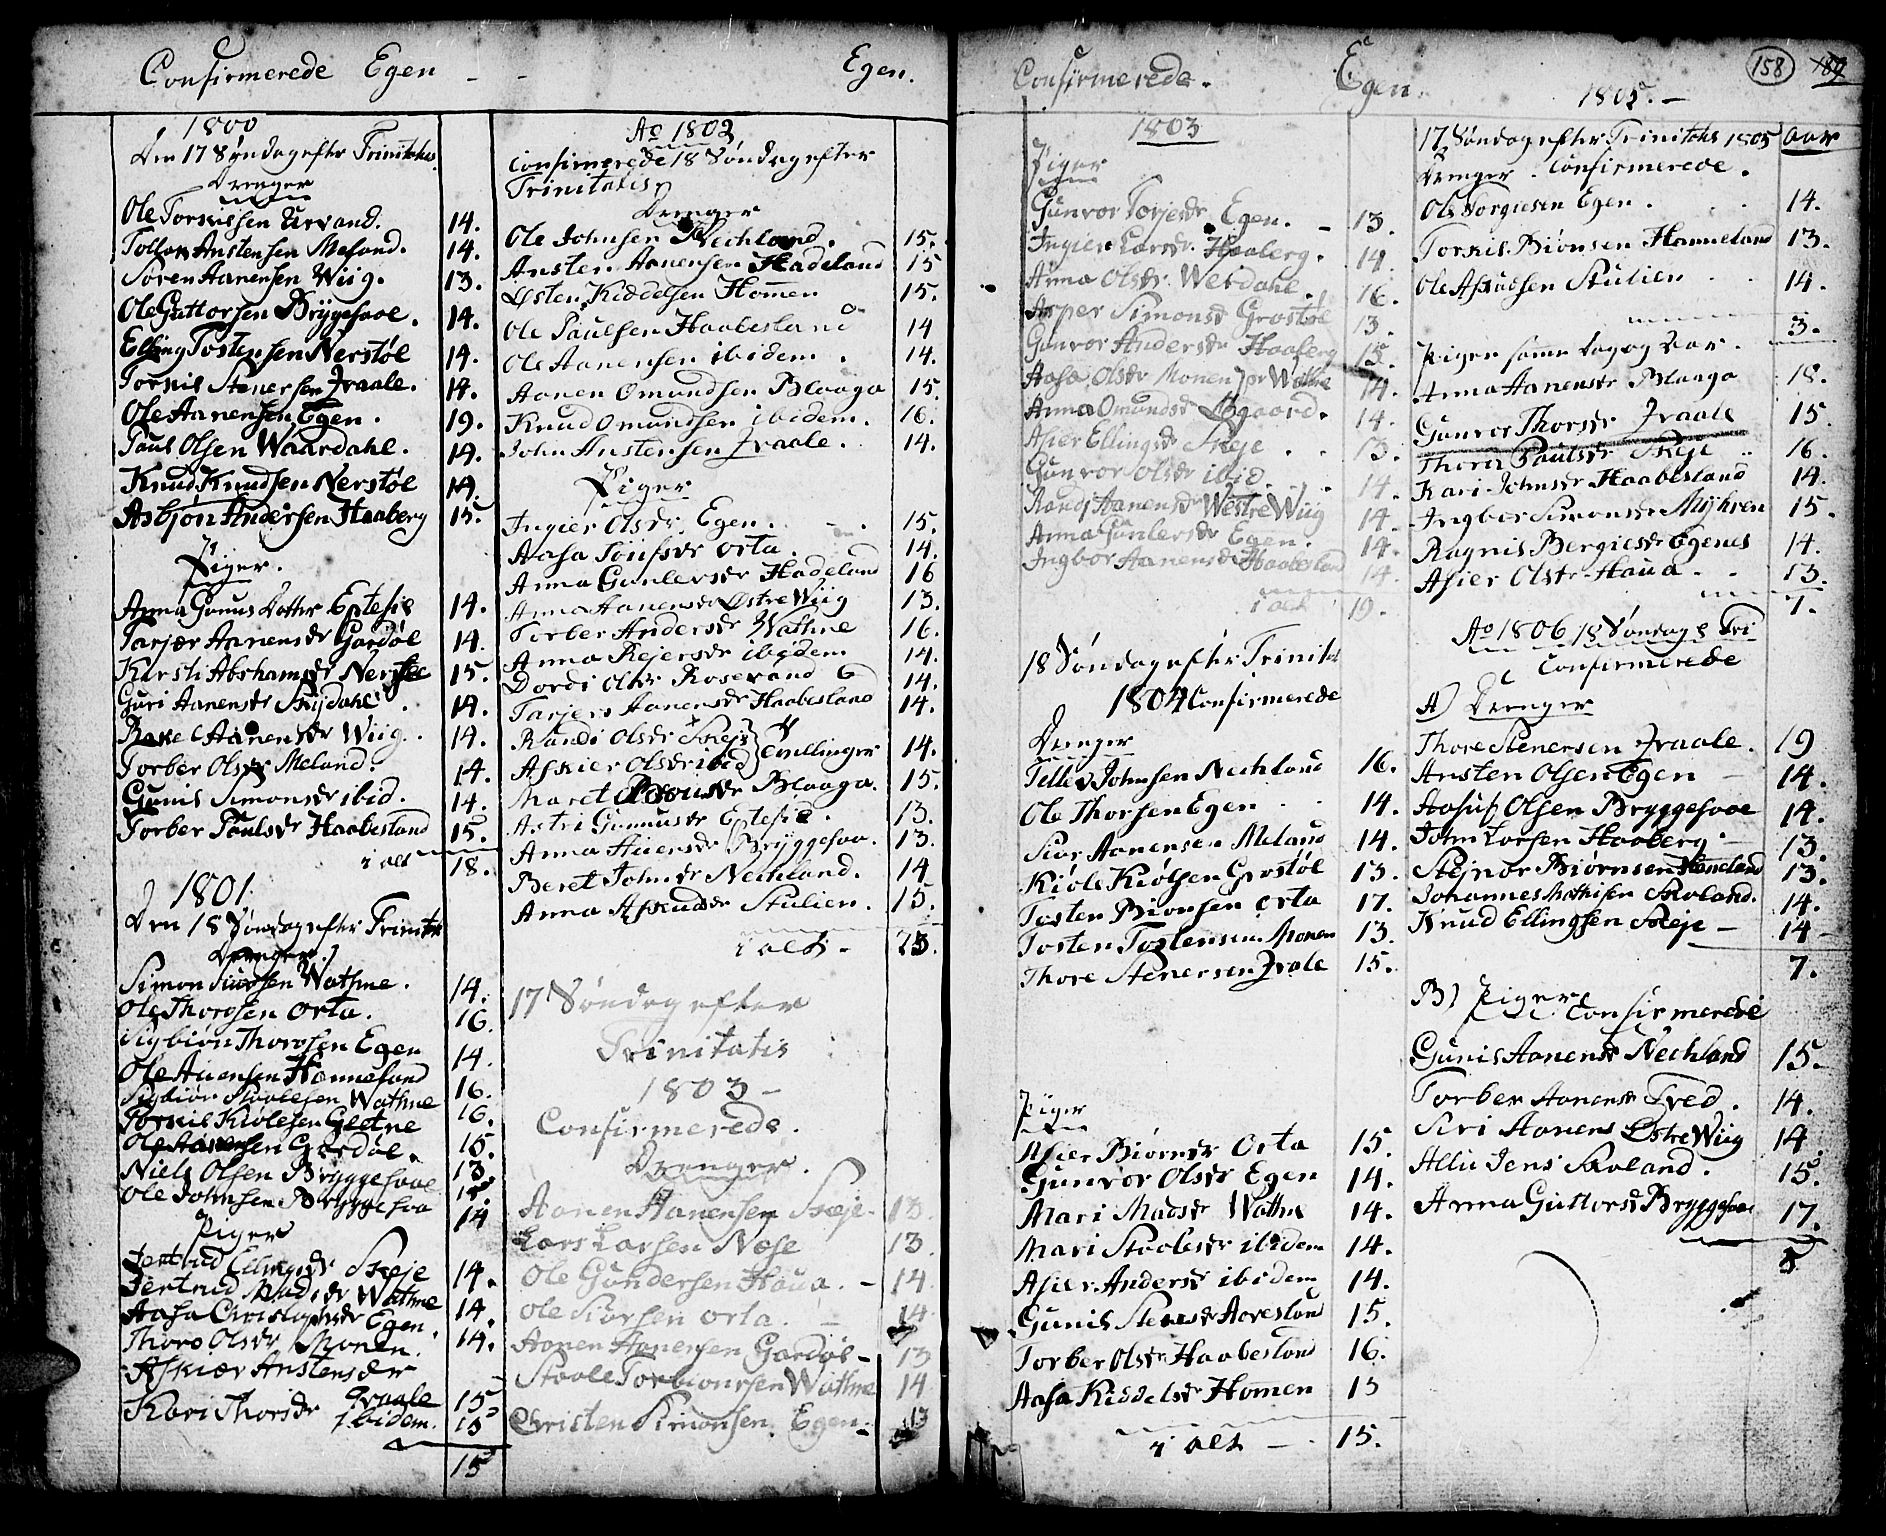 Confirmerede Egen - - Egen.
1800
Den 17 Søndag efter Trinitatis
Drenger
Ole Torkilsen Urvand. 14.
Anstensen Meland. 14.
Søren Aanensen Wiig. 13.
Ole Guttorsen Bryggesaae. 14.
Elling Tostensen Nerstøl 14.
Torkil Stenersen Fraale. 14.
Ole Aanensen Egen. 19.
Paul Olsen Waardahl. 14.
Knud Knudsen Nerstøl 14.
Asbjøn Andersen Haaberg 15.
Piger.
Anna Gunus Datter Eptesie 14.
Tarjær Aanensdr Gardøl 14.
Kirsti Abrahamsdr Nerstøl 15.
Guri Aanensdr 14.
Rakel Aanensdr Wiig. 14.
Torber Olsdr Meland. 14.
Gunil Simonsdr ibid. 14.
Torber Paulsdr Haabesland 15
i alt 18.
1801.
Den 18 Søndag efter Trinitat
Drenger
Simon Wathne. 14.
Ole Thorsen Orta. 16.
Sigbiøn Thorsen Egen 14.
Ole Hanneland 16.
Sigbiøn Staalesen Wathne 16.
Torkil Kiølesen Gletne 15.
Ole Aanensen Gardøl. 13
Niels Olsen Bryggesaae
Ole Johnsen Bryggesaa 14
Piger
Jertrud Ellingsdr Skeje 14.
Jertrud Madsdr Wathne 14.
Aasa Christophsdr Egen. 14.
Thore Olsdr Monen.
Askiær Anstensdr
Fraale 15
Kari Thorsdr ibidem. 15
15
Ao 1802
Confirmerede 18 Søndag efter
Trinitatis
Drenger
Ole Johnsen Nechland. 15.
Ansten Aanensen Hadeland 15
Østen Kiddelsen Homen 15.
Ole Paulsen Haabesland 14
Ole Aanensen ibidem. 14.
Aanen Omundsen Blaaga 15.
Knud Omundsen ibidem. 16.
John Anstensen Fraale. 14.
Piger
Ingier Olsdr Egen. 15.
Aasa Orta. 14.
Anna Gunlersdr Hadeland 16
Anna Aanensdr Østre Wiig 13.
Torber Andersdr Wathne 16.
Anna Rejersdr ibidem 14.
Dordi Olsdr Rosevand 14.
Tarjers Aanensdr Haabesland 14.
Randi Olsdr Skeje
Askier Olsdr ibid } Tvillinger 14.
Maret Blaaga. 15.
Astri Gunnusdr Eptesie. 13.
Anna Bryggesaa. 13.
Beret Johnsdr Nechland. 14
Anna Asmudsdr Stulien. 15.
i alt - 23.
17 Søndag efter
Trinitatis
1803 -
Confirmerede.
Drenger.
Aanen Aanensen Skeje. 13.
Lars Larsen Næse 13.
Ole Gundersen Haua. - 14
Ole Siursen Orta. - 14
Aanen Aanensen Gardøl - 13
Staale Torbiørnsen Wathne 14
Christen Simonsen. Egen. 13
Confirmerede. Egen. 158
1803
Piger
Gunvor Torjesdr Egen. - 13.
Ingier Larsdr. Haaberg. 14.
Anna Olsdr Werdahl. 16.
Asper Simonsdr Grostøl 13.
Gunvor Andersdr Haaberg 15.
Aasa Olsdr Monen Wathne 14.
Anna Omundsdr Øgaard. 14.
Asier Ellingsdr Skeje . . 13.
Gunvor Olsdr ibid. . . 14.
Randi Aanensdr Westre Wiig 14.
Anna Gunlersdr Egen. 14.
Ingbor Aanensdr Haabesland 14.
i alt 19.
18 Søndag efter Trinitat
1804 Confirmerede
Drenger
Tellev Johnsen Nechland 16.
Ole Thorsen Egen . . 14.
Siur Aanensen Meland 14.
Kiøle Kiølsen Grostøl 13.
Tosten Biønsen Orta 17.
Tosten Tostensen Monen 13.
Thore Stenersen Fraale 15.
Piger
Asier Biørnsdr Orta 15.
Gunvor Olsdr Egen 14.
Mari Madsdr Wathne 14.
Mari Staalesdr ibidem 14.
Asier Andersdr ibidem 14.
Gunil Stensdr Aavesland 15.
Torber Olsdr Haabesland 16.
Aasa Kiddelsdr Homen 15
i alt - . 15.
1805. -
17 Søndag efter Trinitatis 1805 Aar
Drenger. Confirmerede.
Ole Torgiesen Egen . . 14.
Torkil Biønsen Hanneland 13.
Ole Asmudsen Stulien . . 14.
3.
Piger samme dag og Aar.
Anna Aanensdr Blaaga 18.
Gunvor Thorsdr Fraale 15.
Thora Paulsdr Skeje .. 16.
Kari Johnsdr Haabesland 14.
Ingbor Simonsdr Myhren 15.
Ragnil Bergiesdr Egenes 14.
Asier Olsdr Haua . . 13.
7.
Ao 1806 18 Søndag e Tri
Confirmerede
A) Drenger
Thore Stenersen Fraale. 19
Ansten Olsen Egen - 14.
Aasul Olsen Bryggesaae 14.
John Larsen Haaberg - 13.
Stejnor Biørnsen Hanneland 13.
Johannes Mathisen Skoland. 14.
Knud Ellingsen Skeje - 14
7.
B) Piger
Confirmerede
Gunil Aanensdr Nechland 15.
Torber Aanensdr Tved. 14.
Siri Aanens Østre Wiig 14.
Allis Jens Skoland. 15.
Anna Guttorsdr Bryggesaae 17.